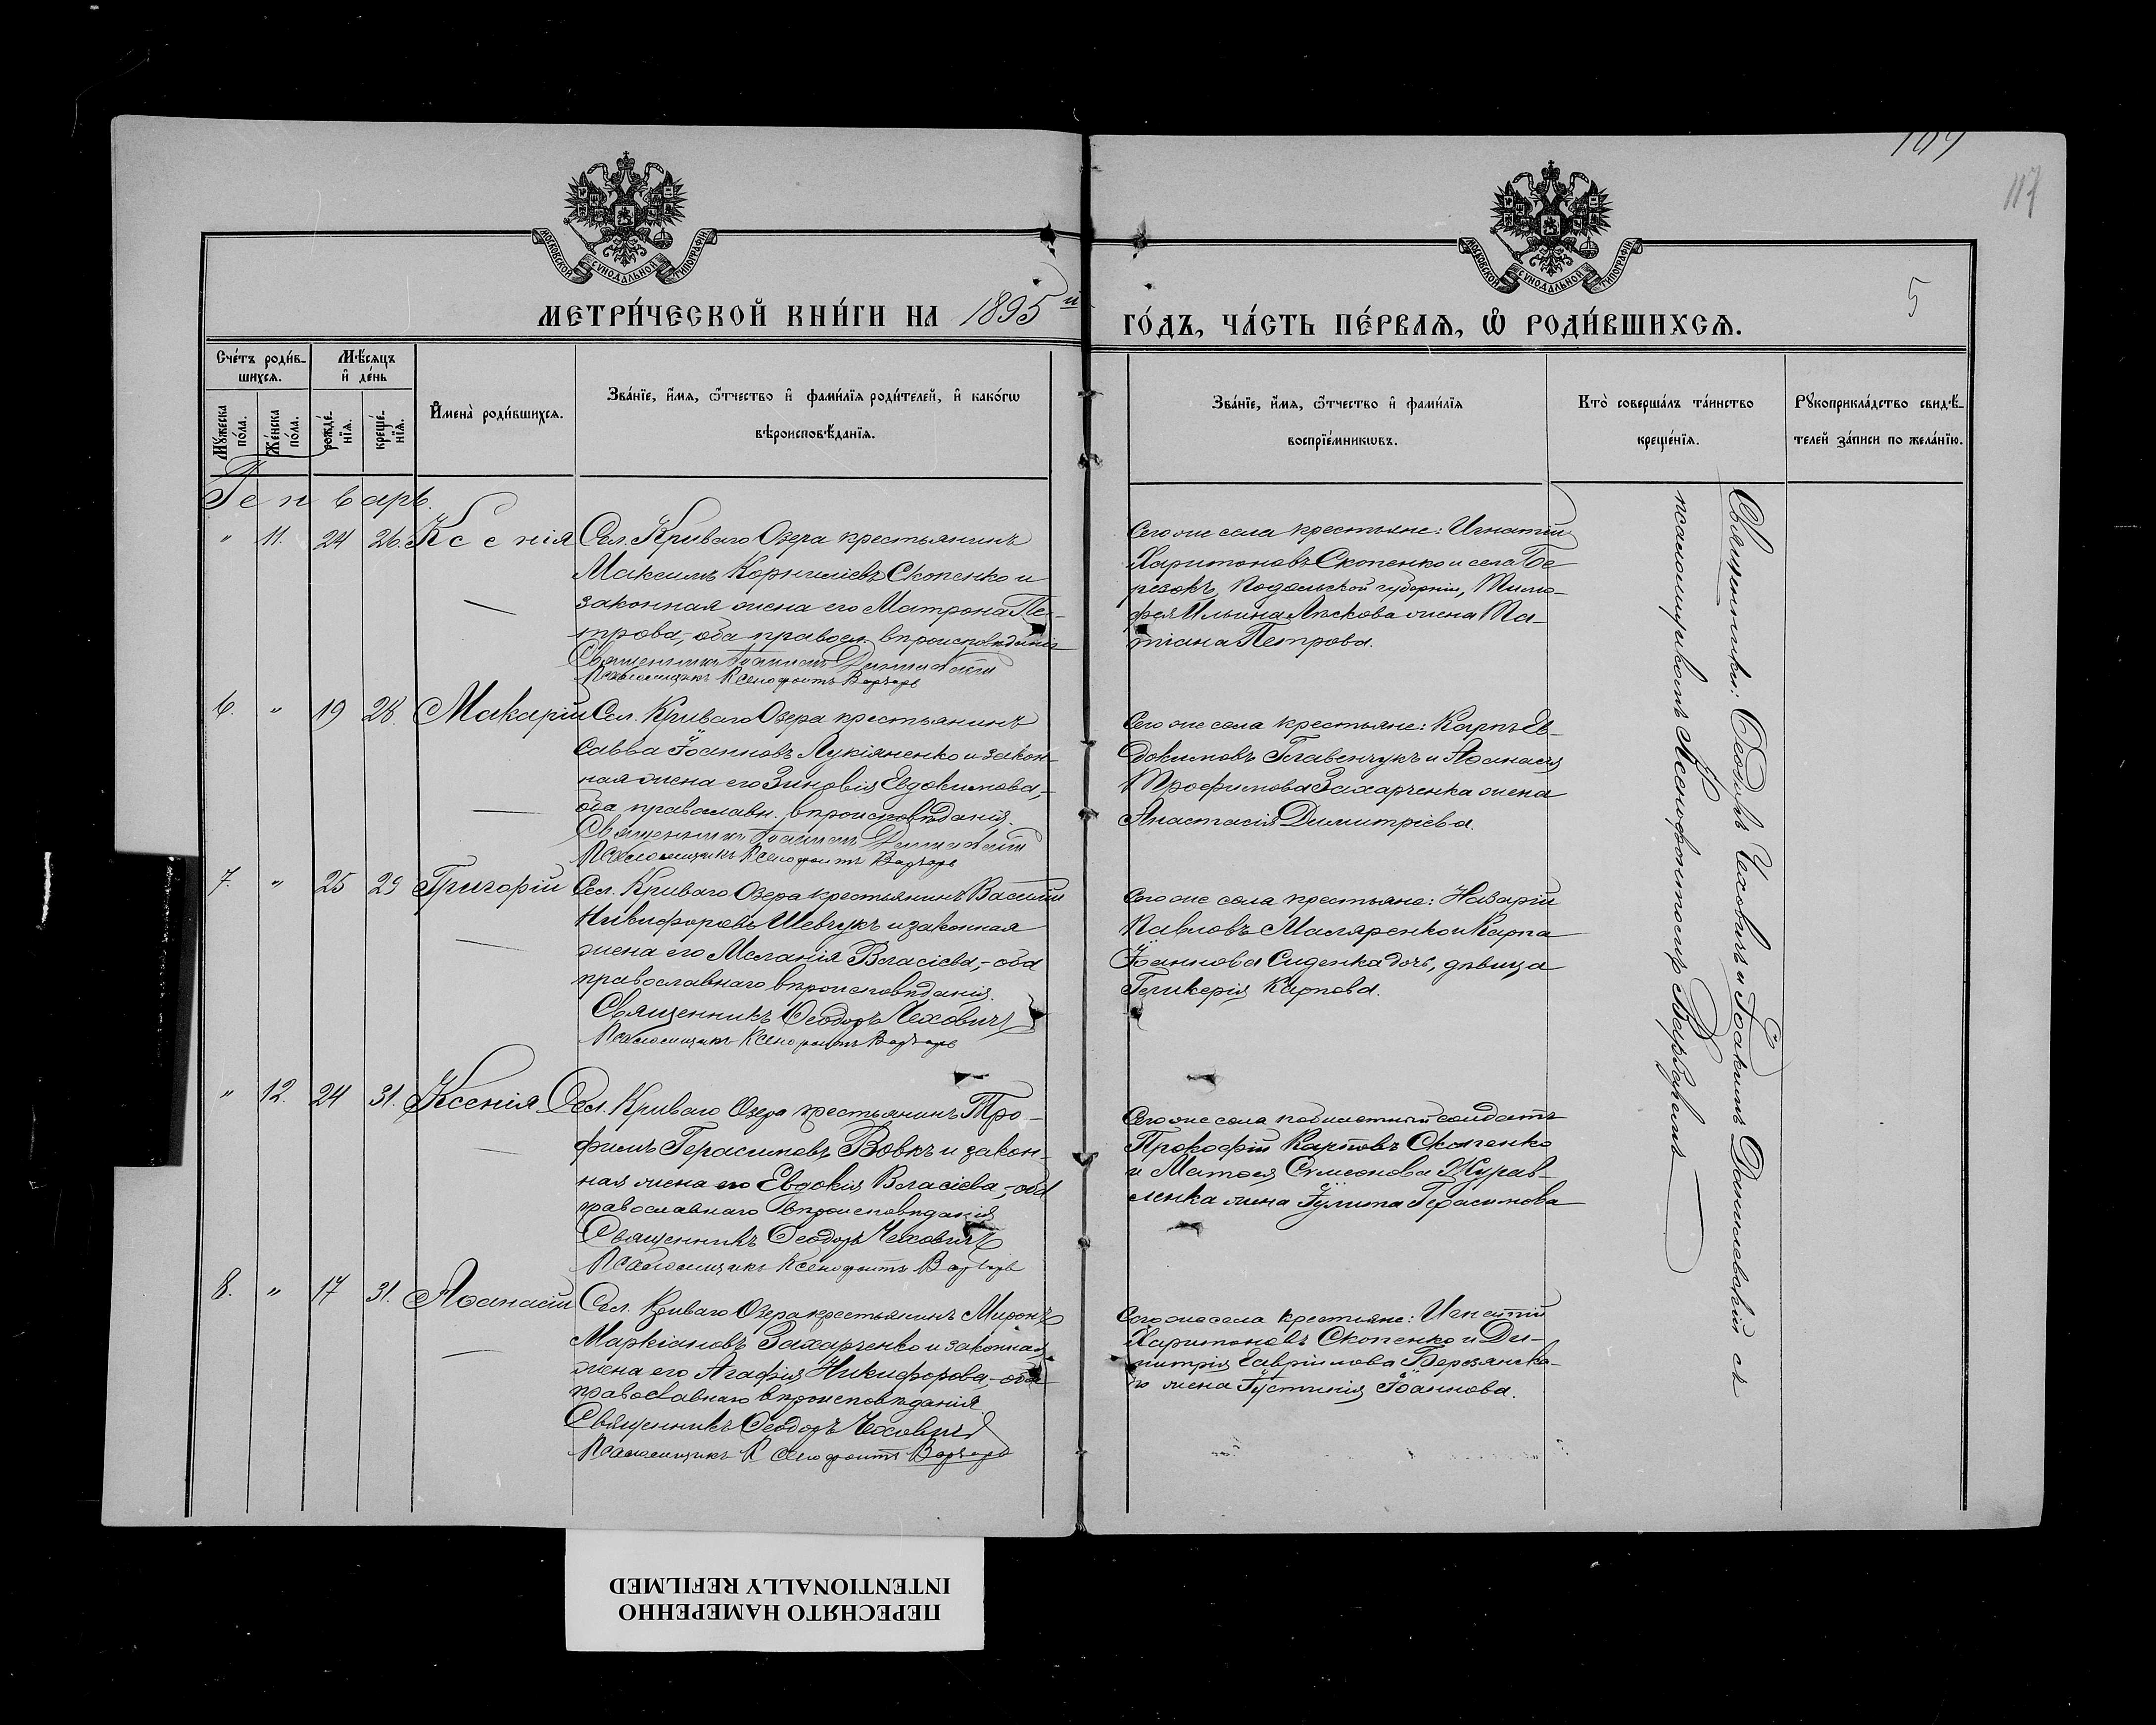 109
117
5
МОСКОВСКОЙ СѴНОДАЛЬНОЙ ТИПОГРАФІИ
МОСКОВСКОЙ СѴНОДАЛЬНОЙ ТИПОГРАФІИ
МЕТРИ́ЧЕСКОЙ КНИ́ГИ НА 1895й
ГО́ДЪ, ЧА́СТЬ ПЕ́РВАѦ, Ѡ҆ РОДИ́ВШИХСѦ.
Сче́тъ роди́в-
шихсѧ.
Мꙋ́жеска по́ла.
Же́нска по́ла.
Мѣ́сѧцъ
и҆ де́нь
рожде́-
нїѧ.
креще́-
нїѧ.
И҆мена̀ роди́вшихсѧ.
Зва́нїе, и҆́мѧ, ѻ҆́тчество и҆ фами́лїѧ роди́телей, и҆ како́гѡ
вѣроисповѣ́данїѧ.
Зва́нїе, и҆́мѧ, ѻ҆́тчество и҆ фами́лїѧ
воспрїе́мникѡвъ.
Кто̀ соверша́лъ та́инство
креще́нїѧ.
Рꙋкоприкла́дство свидѣ́-
телей за́писи по жела́нїю.
Генварь.
" 11. 24 26. Ксенія
Сел. Криваго Озера крестьянинъ
Максимъ Корниліевъ Скопенко и
законная жена его Матрона Пе-
трова,- оба правосл. вѣроисповѣданія
Священникъ Іоакимъ Данилевскій
Псаломщикъ Ксенофонтъ Варваре
Сего же села крестьяне: Игнатій
Харитоновъ Скопенко и села Бе
резокъ, Подольской губерніи, Тимо-
фея Ильина Ляскова жена Та-
тіана Петрова.
6. " 19 28. Макарій
Сел. Криваго Озера крестьянинъ
Савва Іоанновъ Лукіяненко и закон-
ная жена его Зиновія Евдокимова,-
оба православн. вѣроисповѣданія.
Священникъ Іоакимъ Данилевскій
Псаломщикъ Ксенофонтъ Варваре
Сего же села крестьяне: Карпъ Ев-
докимовъ Главенчукъ и Аѳанасія
Трофимова Захарченка жена
Анастасія Димитріева.
7. " 25 29 Григорій
Сел. Криваго Озера крестьянинъ Василій
Никифоровъ Шевчукъ и законная
жена его Меланія Власіева,- оба
православнаго вѣроисповѣданія.
Священникъ Ѳеодоръ Чеховичъ
Псаломщикъ Ксенофонтъ Варваре
Сего же села крестьяне: Назарій
Павловъ Маляренко и Карпа
Іоаннова Сиденка дочь, дѣвица
Гликерія Карпова.
" 12. 24 31. Ксенія
Сел. Криваго Озера крестьянинъ Тро-
фимъ Герасимовъ Вовкъ и закон-
ная жена его Евдокія Власіева,- оба
православнаго вѣроисповѣданія
Священникъ Ѳеодоръ Чеховичъ
Псаломщикъ Ксенофонтъ Варваре
Сего же села солдатъ
Прокофій Карповъ Скопенко
и Матѳея Симеонова Журав-
ленка жена Іулита Герасимова
8. " 17 31. Аѳанасій
Сел. Криваго Озера крестьянинъ Миронъ
Маркіановъ Захарченко и законная
жена его Агафія Никифорова,- оба
православнаго вѣроисповѣданія.
Священникъ Ѳеодоръ Чеховичъ
Псаломщикъ Ксенофонтъ Варваре
Сего же села крестьяне: Игнатій
Харитоновъ Скопенко и Ди-
митрія Гавріилова Березянска-
го жена Іустинія Іоаннова.
Священники: Ѳеодоръ Чеховичъ и Іоакимъ Данилевскій съ
псаломщикомъ Ксенофонтомъ
ПЕРЕСНЯТО НАМЕРЕННО
INTENTIONALLY REFILMED